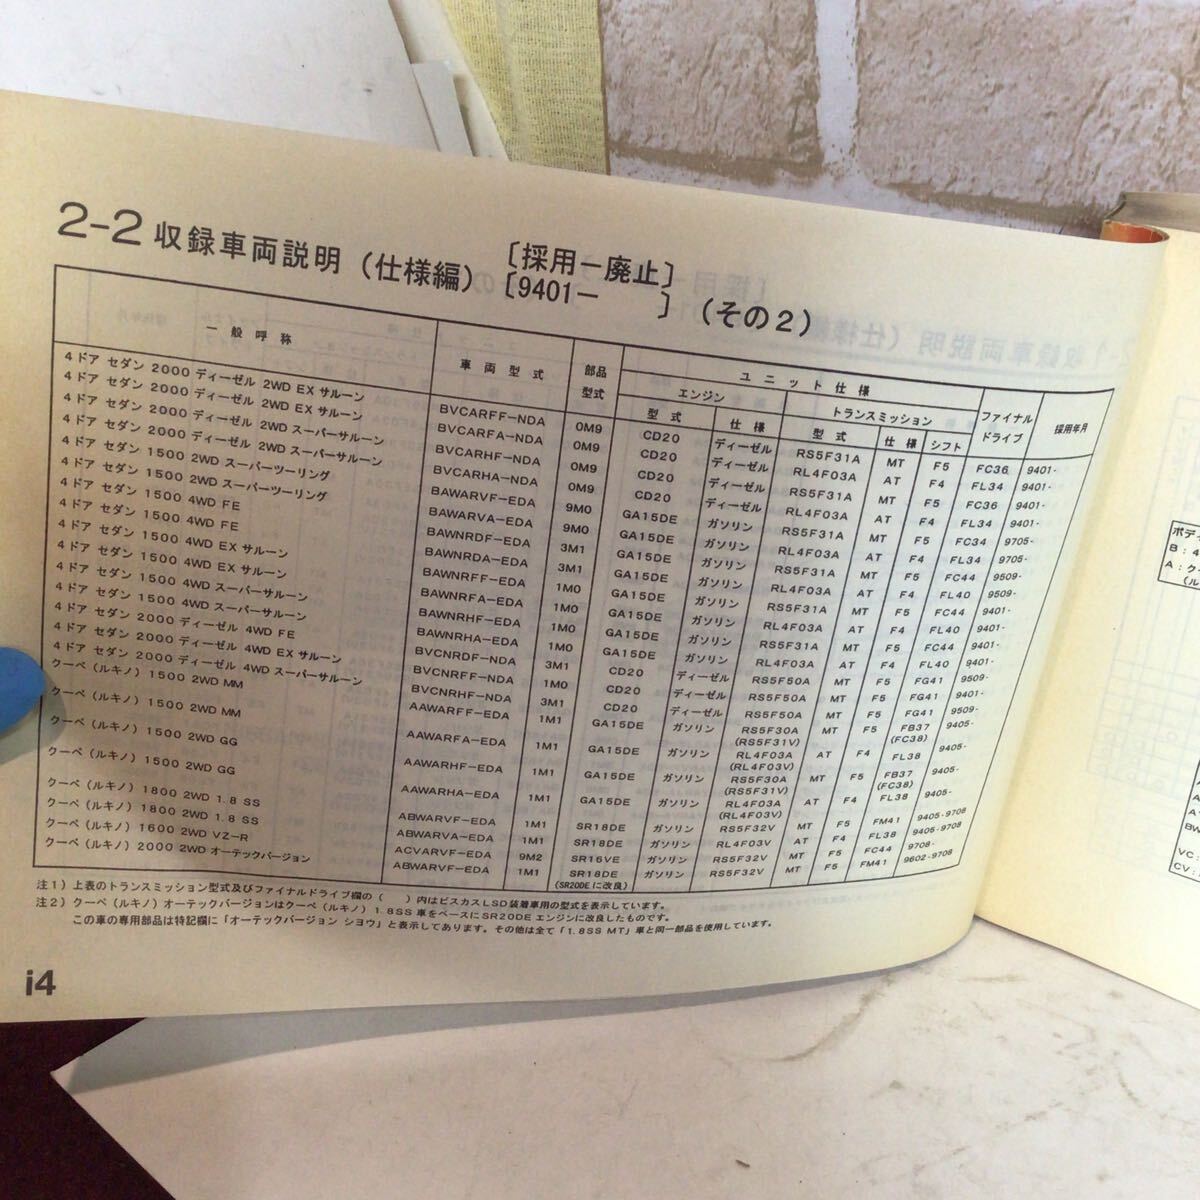 2-2 収録車両説明 (仕様編) [採用ー廃止] [9401ー ] (その2)
一般呼称 車両型式 部品型式 ユニット仕様 ファイナルドライブ 採用年月
エンジン トランスミッション
型式 仕様 型式 仕様 シフト
4ドア セダン 2000 ディーゼル 2WD EXサルーン BVCARFF-NDA 0M9 CD20 ディーゼル RS5F31A MT F5 FC36 9401-
4ドア セダン 2000 ディーゼル 2WD EXサルーン BVCARFA-NDA 0M9 CD20 ディーゼル RL4F03A AT F4 FL34 9401-
4ドア セダン 2000 ディーゼル 2WD スーパーサルーン BVCARHF-NDA 0M9 CD20 ディーゼル RS5F31A MT F5 FC36 9401-
4ドア セダン 2000 ディーゼル 2WD スーパーサルーン BVCARHA-NDA 0M9 CD20 ディーゼル RL4F03A AT F4 FL34 9401-
4ドア セダン 1500 2WD スーパーツーリング BAWARVF-EDA 9M0 GA15DE ガソリン RS5F31A MT F5 FC34 9705-
4ドア セダン 1500 2WD スーパーツーリング BAWARVA-EDA 9M0 GA15DE ガソリン RL4F03A AT F4 FL34 9705-
4ドア セダン 1500 4WD FE BAWNRDF-EDA 3M1 GA15DE ガソリン RS5F31A MT F5 FC44 9509-
4ドア セダン 1500 4WD FE BAWNRDA-EDA 3M1 GA15DE ガソリン RL4F03A AT F4 FL40 9509-
4ドア セダン 1500 4WD EXサルーン BAWNRFF-EDA 1M0 GA15DE ガソリン RS5F31A MT F5 FC44 9401-
4ドア セダン 1500 4WD EXサルーン BAWNRFA-EDA 1M0 GA15DE ガソリン RL4F03A AT F4 FL40 9401-
4ドア セダン 1500 4WD スーパーサルーン BAWNRHF-EDA 1M0 GA15DE ガソリン RS5F31A MT F5 FC44 9401-
4ドア セダン 1500 4WD スーパーサルーン BAWNRHA-EDA 1M0 GA15DE ガソリン RL4F03A AT F4 FL40 9401-
4ドア セダン 2000 ディーゼル 4WD FE BVCNRDF-NDA 3M1 CD20 ディーゼル RS5F50A MT F5 FG41 9509-
4ドア セダン 2000 ディーゼル 4WD EXサルーン BVCNRFF-NDA 1M0 CD20 ディーゼル RS5F50A MT F5 FG41 9401-
4ドア セダン 2000 ディーゼル 4WD スーパーサルーン BVCNRHF-NDA 3M1 CD20 ディーゼル RS5F50A MT F5 FG41 9509-
クーペ (ルキノ) 1500 2WD MM AAWARFF-EDA 1M1 GA15DE ガソリン RS5F30A (RS5F31V) MT F5 FB37 (FC38) 9405-
クーペ (ルキノ) 1500 2WD MM AAWARFA-EDA 1M1 GA15DE ガソリン RL4F03A (RL4F03V) AT F4 FL38 9405-
クーペ (ルキノ) 1500 2WD GG AAWARHF-EDA 1M1 GA15DE ガソリン RS5F30A (RS5F31V) MT F5 FB37 (FC38) 9405-
クーペ (ルキノ) 1500 2WD GG AAWARHA-EDA 1M1 GA15DE ガソリン RL4F03A (RL4F03V) AT F4 FL38 9405-
クーペ (ルキノ) 1800 2WD 1.8 SS ABWARVF-EDA 1M1 SR18DE ガソリン RS5F32V MT F5 FM41 9405-9708
クーペ (ルキノ) 1800 2WD 1.8 SS ABWARVA-EDA 1M1 SR18DE ガソリン RL4F03V AT F4 FL38 9405-9708
クーペ (ルキノ) 1600 2WD VZ-R ACVARVF-EDA 9M2 SR16VE ガソリン RS5F32V MT F5 FC44 9708-
クーペ (ルキノ) 2000 2WD オーテックバージョン ABWARVF-EDA 1M1 SR18DE (SR20DEに改良) ガソリン RS5F32V MT F5 FM41 9602-9708
注1) 上表のトランスミッション型式及びファイナルドライブ欄の ( ) 内はビスカスLSD装着車用の型式を表示しています。
注2) クーペ (ルキノ) オーテックバージョンはクーペ (ルキノ) 1.8SS車をベースにSR20DEエンジンに改良したものです。
この車の専用部品は特記欄に「オーテックバージョン ショウ」と表示してあります。その他は全て「1.8SS MT」車と同一部品を使用しています。
i4
ボデ
B:4
A:ク
(ル
VC:
CV: